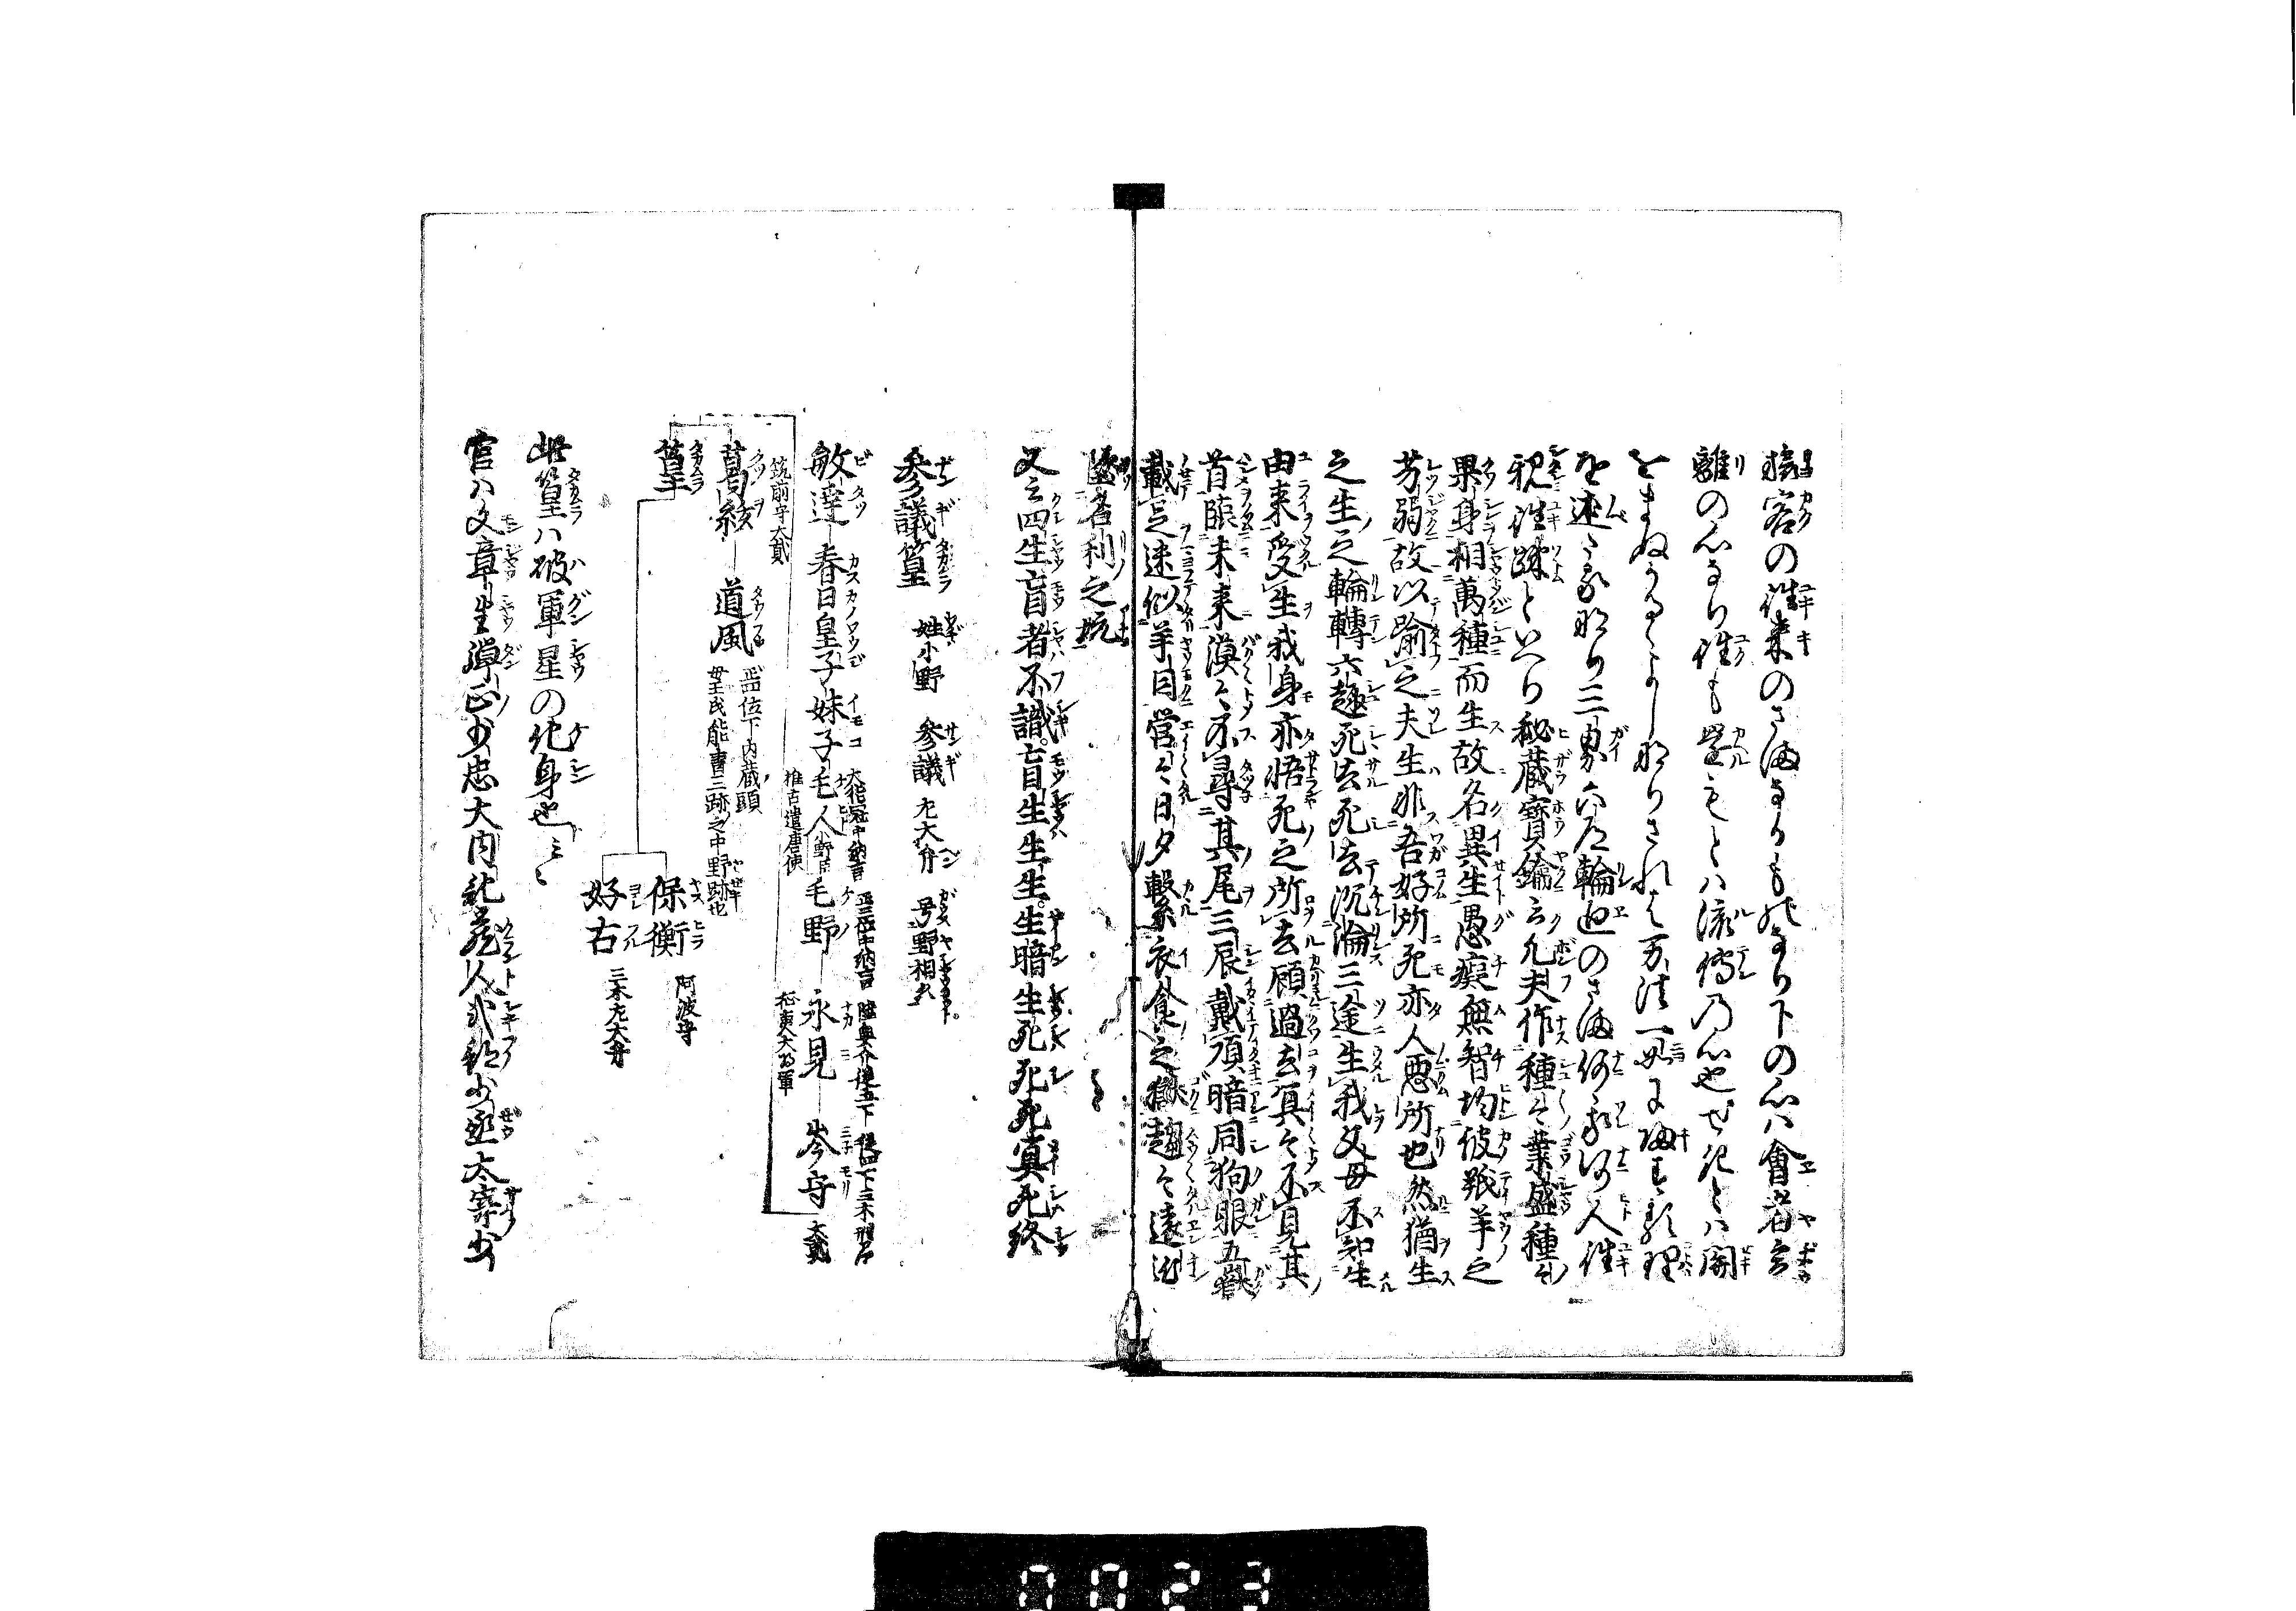 旅客の往来のさまなるものなり下の心ハ會者定
離の心なり往も還もとハ流傳の心也せきとハ関
をまぬかるゝよしなりされは万法一如に帰する理
を述る歌なり三界六道輪廻のさま何家何人往
秘蔵寶鑰云凡夫作種々業感種々
果身相萬種而生故名異生愚癡無智均彼羝羊之
劣弱故以喩之夫生非吾好所死亦人悪所也然猶生
之生之輪轉六趣死去死去沉淪三途生我父母不知生
由来受生我身亦悟死之所去顧過去冥々不見其
首臨未来漠々不尋其尾三辰戴頂暗同狗眼五嶽
載足迷似羊目営々日夕繋衣食之獄趁々遠近
墜名利之坑
又云四生盲者不識盲生生生生暗生死死死死冥死終
参議篁 姓小野 参議左大弁 号野相公
敏達 春日皇子 妹子 毛人 毛野 永見 岑守
大徳冠中納言
推古遣唐使
正三位中納言
陸奥介従五下
征東大将軍
大貳
筑前守大貳
葛絃 道風
正四位下内蔵頭
能書三跡之中野跡也
篁
保衡 阿波守
好古 三木左大弁
此篁ハ破軍星の化身也ト云々
官ハ文章生弾正少忠大内記蔵人式部少丞太宰少